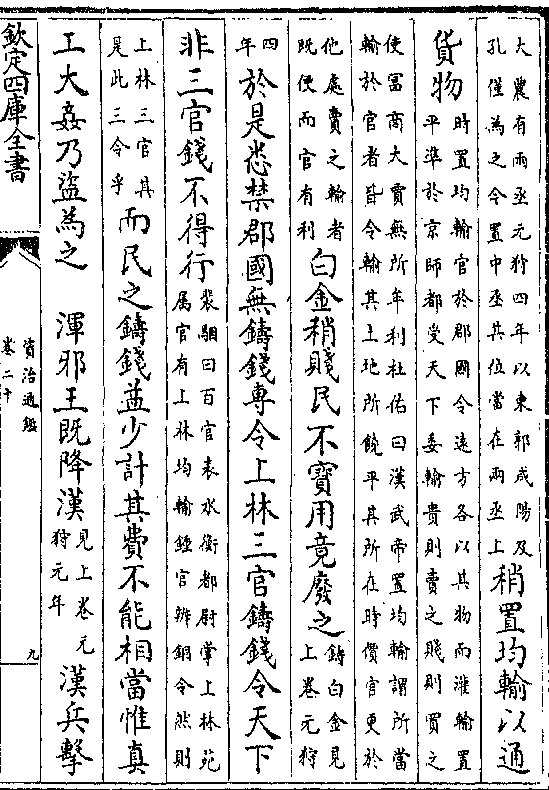 大農有兩丞元狩四年以東郭咸陽及
孔僅為之今置中丞其位當在兩丞上
稍置均輸以通
貨物
時置均輸官於郡國令遠方各以其物而灌輸置
平準於京師都受天下委輸貴則賣之賤則買之
使富商大賈無所牟利杜佑曰漢武帝置均輸謂所當
輸於官者皆令輸其土地所饒平其所在時價官更於
他處賣之輸者
既便而官有利
白金稍賤民不寶用竟廢之
鑄白金見
上卷元狩
四
年
於是悉禁郡國無鑄錢專令上林三官鑄錢令天下
非三官錢不得行
裴駰曰百官表水衡都尉掌上林苑
属官有上林均輸鍾官辨銅令然則
上林三官其
是此三令乎
而民之鑄錢益少計其費不能相當惟真
工大姦乃盜為之 渾邪王既降漢
見上卷元
狩元年
漢兵擊
欽定四庫全書
資治通鑑
卷二十
九